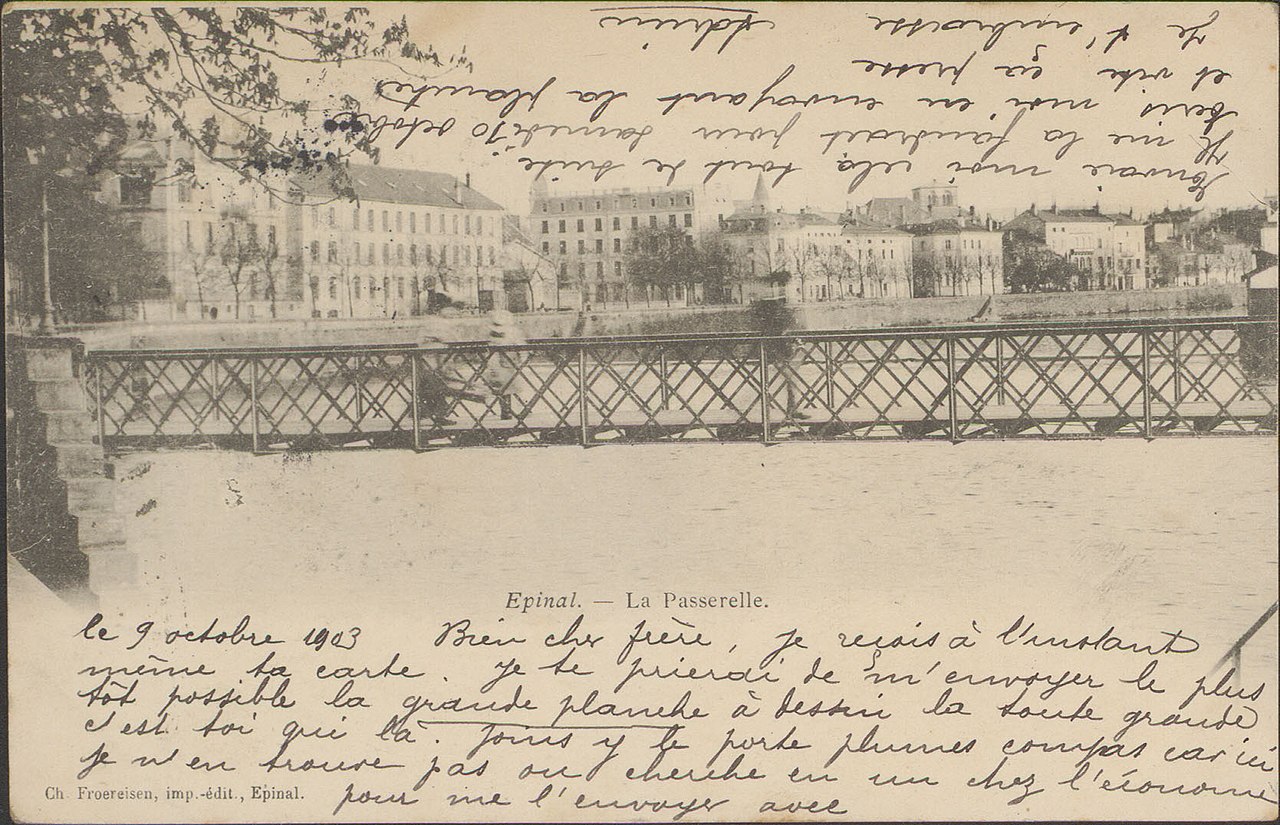 Epinal. — La Passerelle.
le 9 octobre 1903 Bien cher frère, je reçois à l'instant
même ta carte. Je te prierai de m'envoyer le plus
tôt possible la grande planche à dessin la toute grande
c'est toi qui l'a. Joins y le porte plumes compas car ici
je n'en trouve pas ou cherche en un chez l'économe
pour me l'envoyer avec
Ch. Froereisen, imp.-édit., Epinal.
Envoie moi cela tout de suite
Il me la faudrait pour samedi 10 octobre
écris moi en envoyant la planche
et vite ça presse
Je t'embrasse Adrien